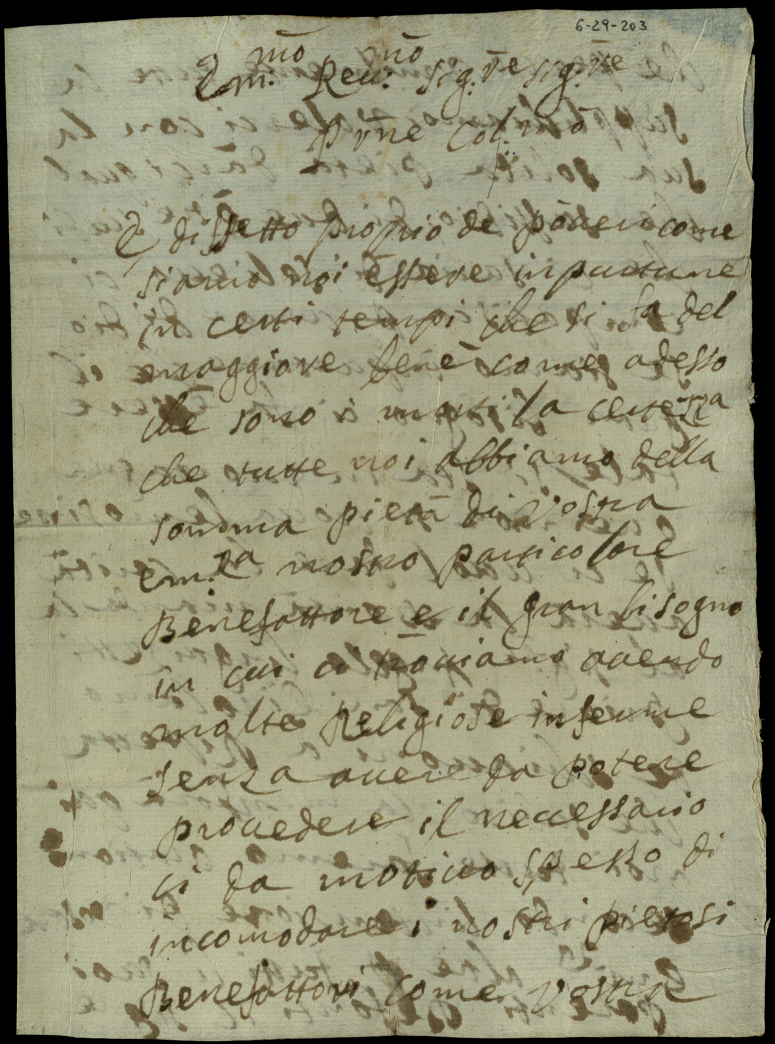 6-29-203
Em:mo Reu:mo Sig:re Sig:re
Prōne Col:mo
È difetto proprio de poueri come
siamo noi essere inportune
in certi tempi che si fa del
maggiore bene come adesso
che sono i morti la certezza
che tutte noi abbiamo della
somma pietà di Vostra
em:za nostro particolare
Benefattore e il gran bisogno
in cui ci trouiamo auendo
molte Religiose inferme
senza auere da potere
prouedere il necessario
ci da motiuo spesso di
incomodare i nostri pietosi
Benefattori come Vostra